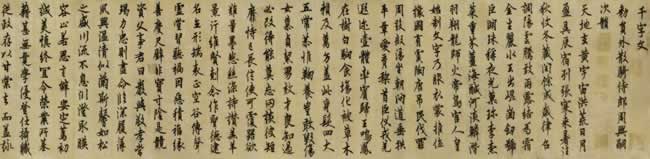 千字文
勑員外散騎侍郎周興嗣
次韻
天地玄黃宇宙洪荒日月
盈昃辰宿列張寒來暑往
秋收冬藏閏餘成歲律呂
調陽雲騰致雨露結為霜
金生麗水玉出崐崗劍號
巨闕珠稱夜光菓珎李柰
菜重芥薑海鹹河淡鱗潛
羽翔龍師火帝鳥官人皇
始制文字乃服衣裳推位
讓國有虞陶唐弔民伐罪
周發殷湯坐朝問道垂拱
平章愛育黎首臣伏戎羌
遐邇壹體率賓歸王鳴鳳
在樹白駒食場化被草木
賴及萬方蓋此身髮四大
五常恭惟鞠養豈敢毀傷
女慕貞絜男效才良知過
必改得能莫忘罔談彼短
靡恃己長信使可覆器欲
難量墨悲絲染詩讚羔羊
景行維賢剋念作聖德建
名立形端表正空谷傳聲
虛堂習聽禍因惡積福緣
善慶尺璧非寶寸陰是競
資父事君曰嚴與敬孝當
竭力忠則盡命臨深履薄
夙興溫凊似蘭斯馨如松
之盛川流不息淵澄取映
容止若思言辭安定篤初
誠美慎終宜令榮業所基
籍甚無竟學優登仕攝職
從政存以甘棠去而益詠